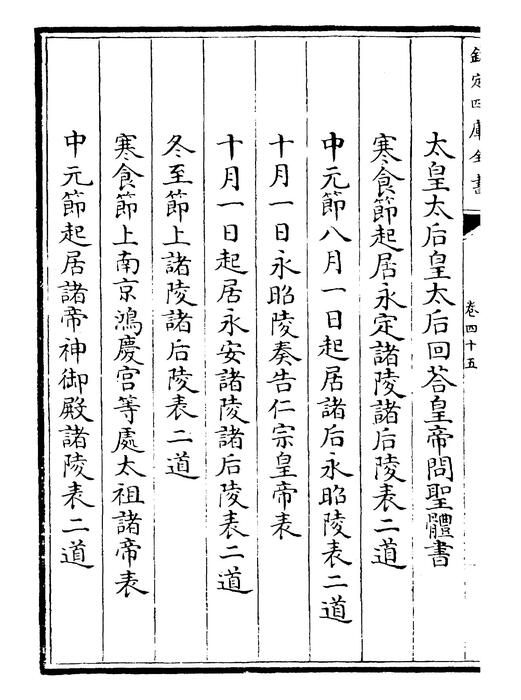 欽定四庫全書
卷四十五
太皇太后皇太后回荅皇帝問聖體書
寒食節起居永定諸陵諸后陵表二道
中元節八月一日起居諸后永昭陵表二道
十月一日永昭陵奏告仁宗皇帝表
十月一日起居永安諸陵諸后陵表二道
冬至節上諸陵諸后陵表二道
寒食節上南京鴻慶宫等處太祖諸帝表
中元節起居諸帝神御殿諸陵表二道